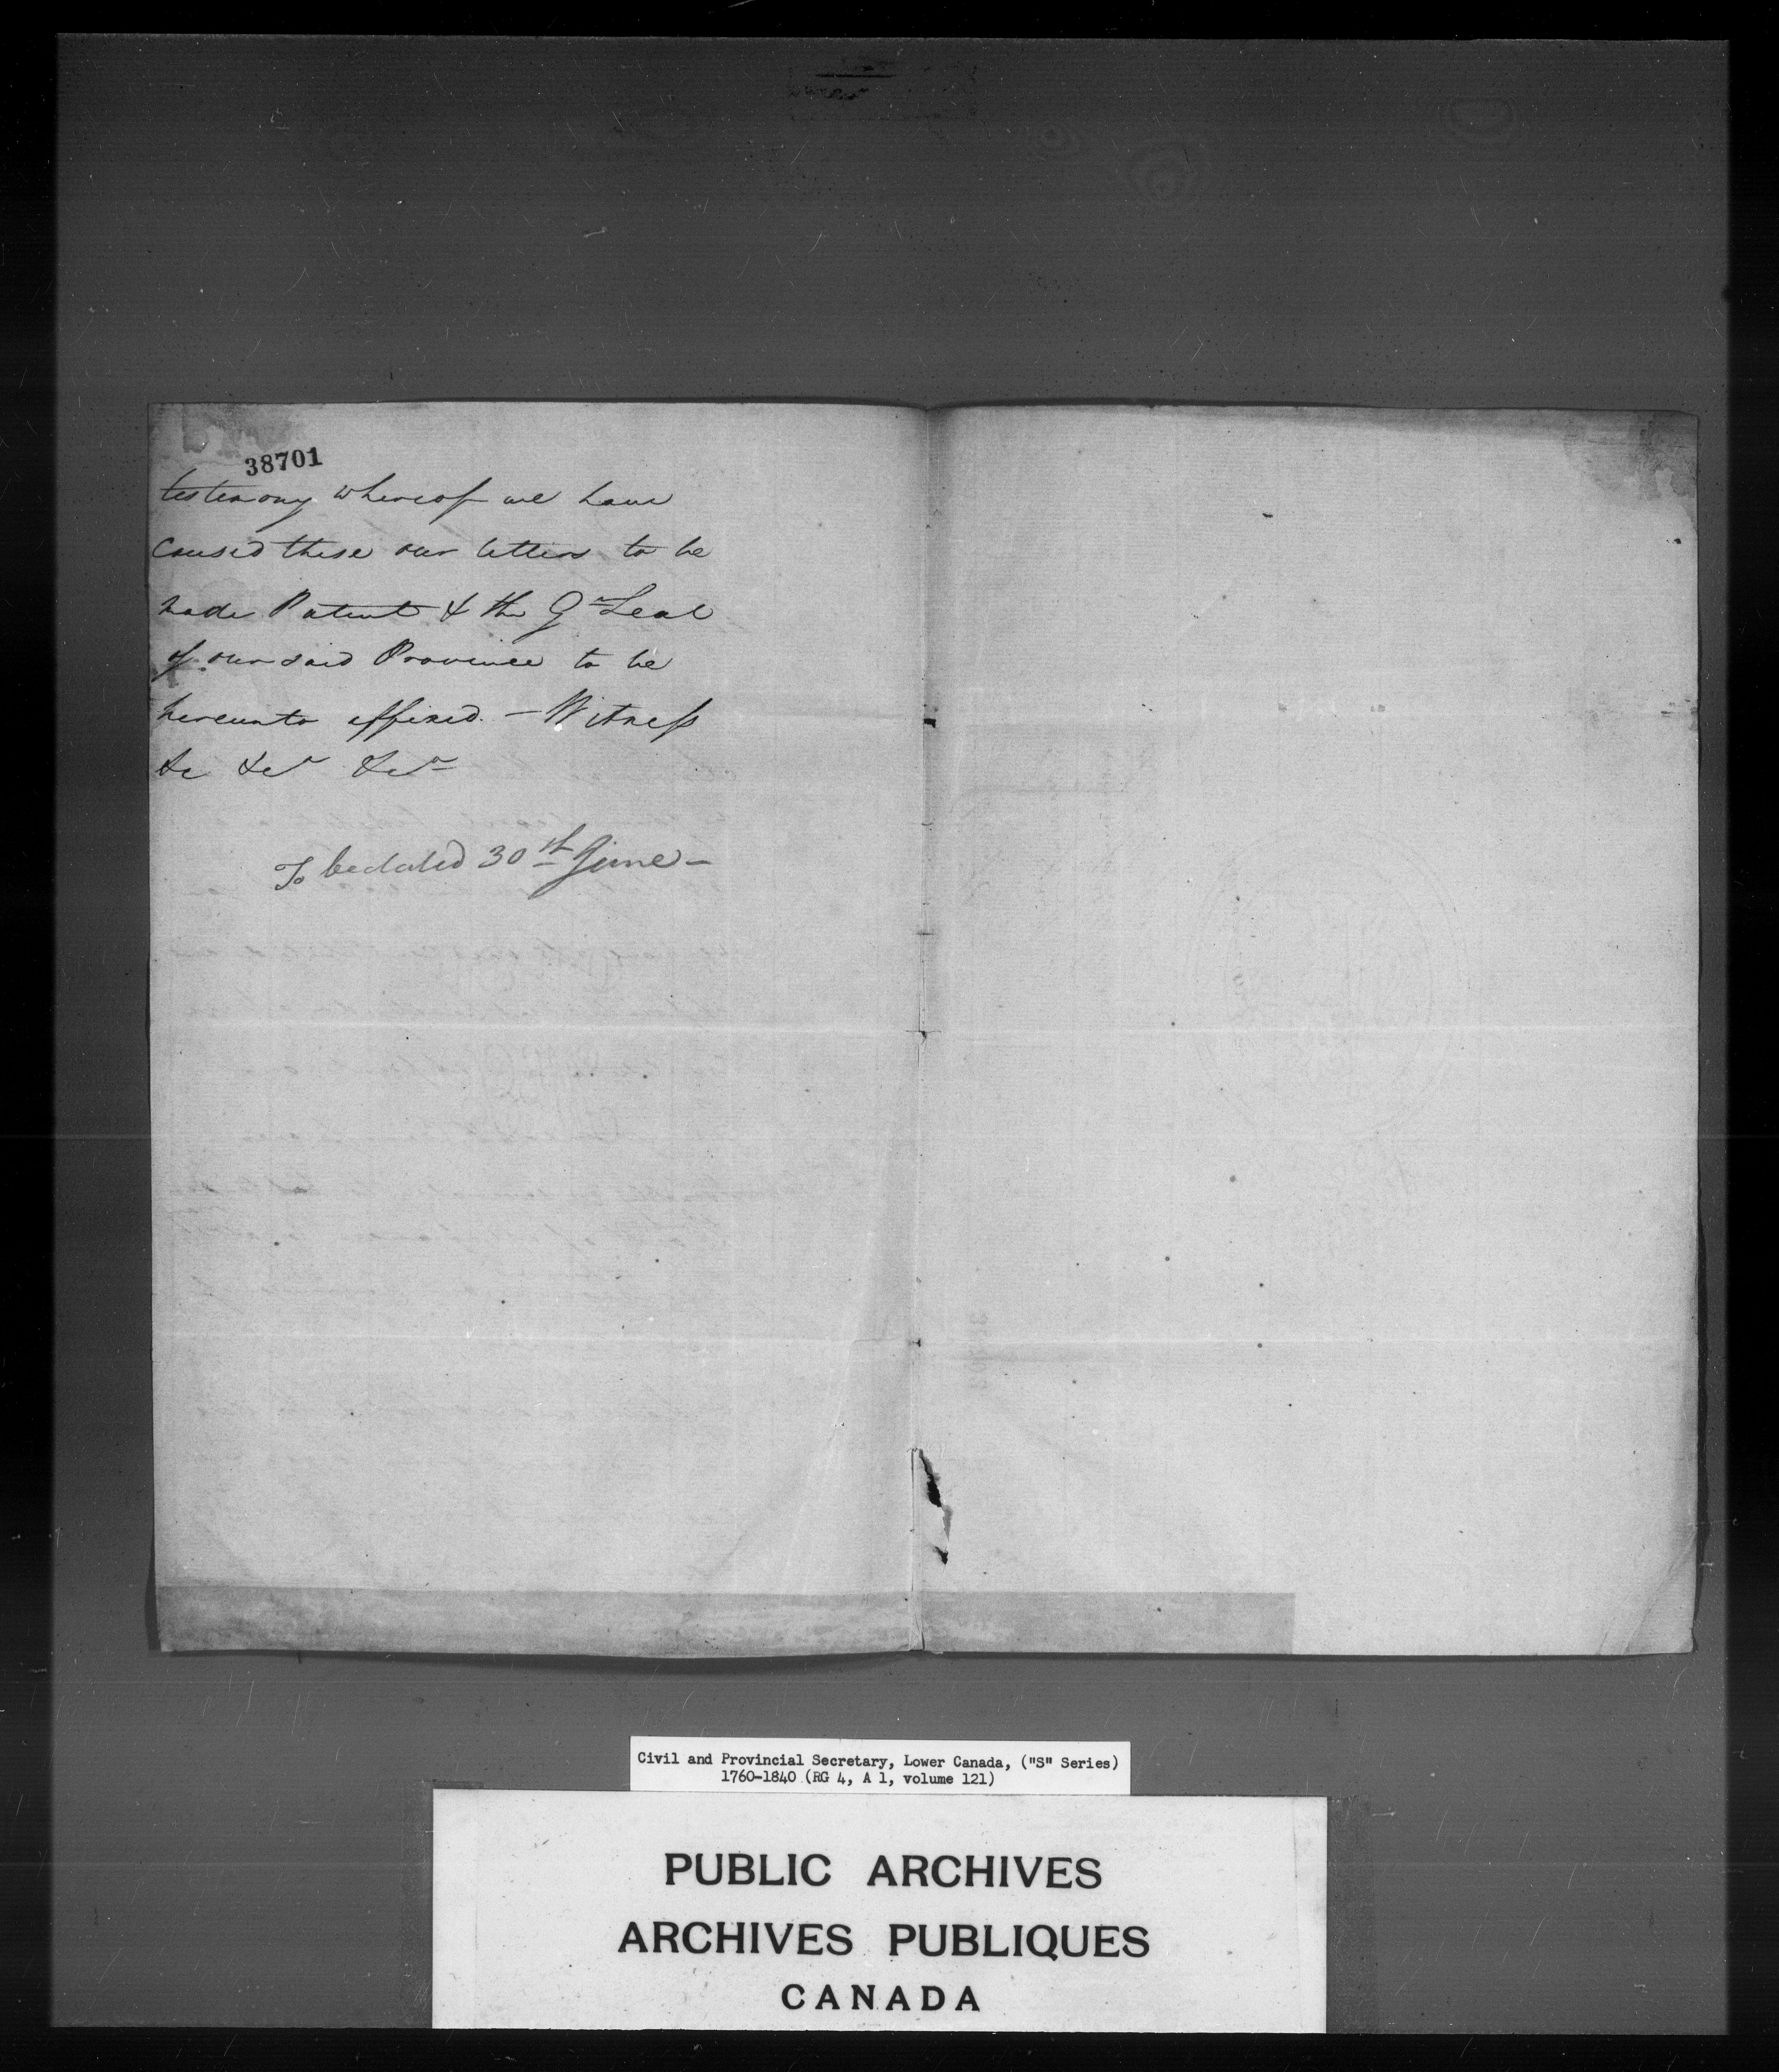 38701
testimony whereof we have
caused these our letters to be
made Patent & the Gt Seal
of our said Province to be
hereunto affixed. - Witness
&c &c &c
To be dated 30th June -
Civil and Provincial Secretary, Lower Canada, ("S" Series)
1760-1840 (RG 4, A 1, volume 121)
PUBLIC ARCHIVES
ARCHIVES PUBLIQUES
CANADA